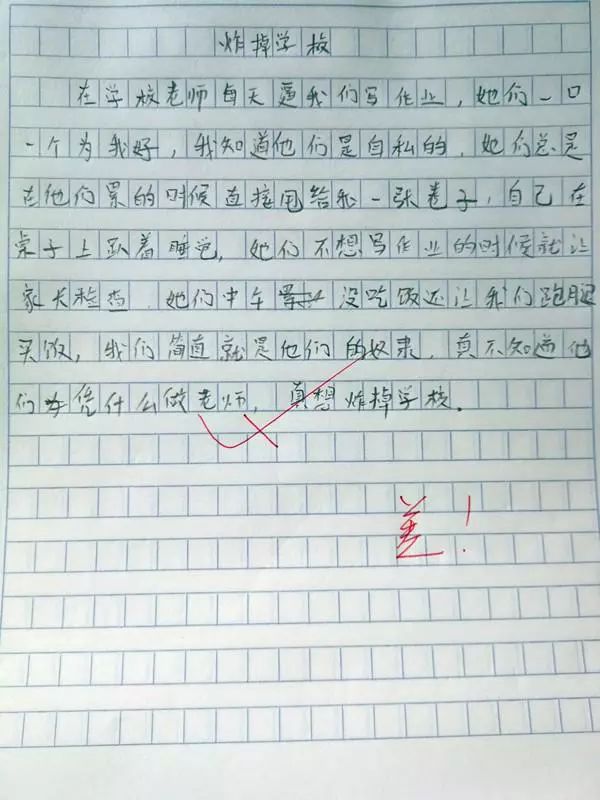 炸掉学校
在学校老师每天逼我们写作业，她们一口
一个为我好，我知道他们是自私的，她们总是
在他们累的时候直接甩给我一张卷子，自己在
桌子上趴着睡觉，她们不想写作业的时候就让
家长检查，她们中午没吃饭还让我们跑腿
买饭，我们简直就是他们的奴隶，真不知道他
们凭什么做老师，真想炸掉学校。
差！